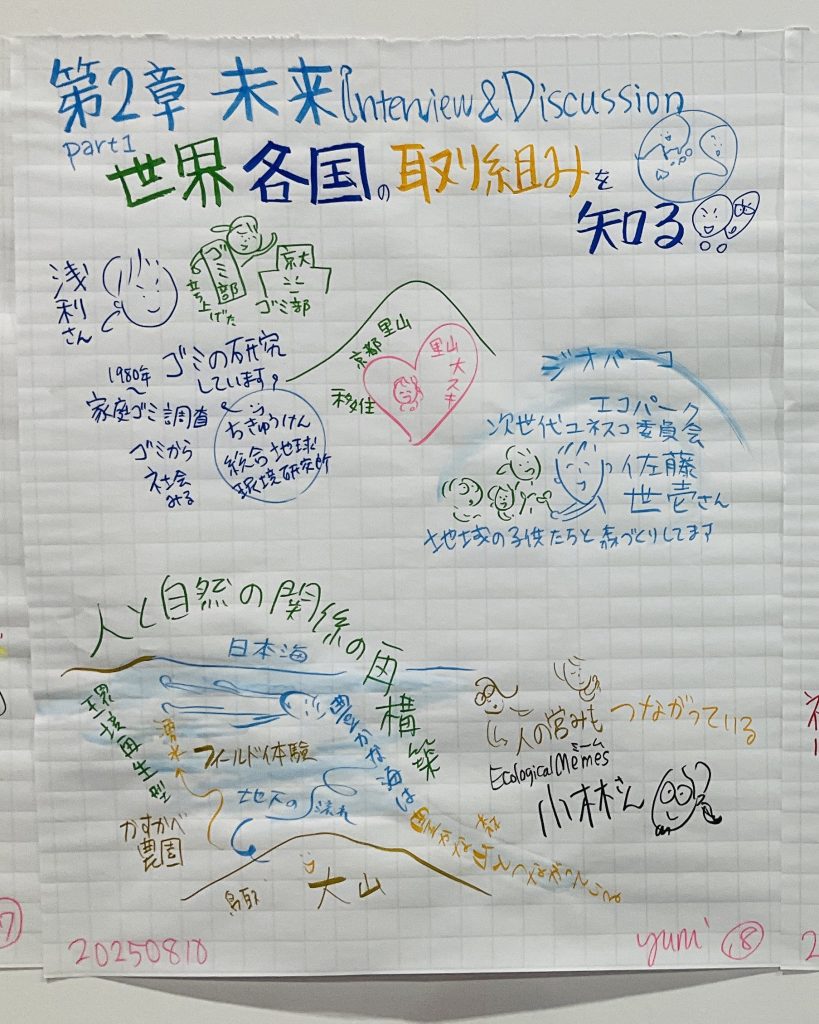 第2章 未来 Interview & Discussion
part1
世界各国の取り組みを
知る
浅利さん
ゴミ部
立ち上げた
京大
ゴミ部
ゴミの研究
しています。
1980年〜
家庭ゴミ調査
ゴミから
社会
みる
ちきゅうけん
総合地球
環境研究所
京都里山
移住
里山
大スキ
ジオパーク
エコパーク
次世代ユネスコ委員会
佐藤
世壱さん
地域の子供たちと森づくりしてます
人と自然の関係の再構築
日本海
環境再生型
湧水
フィールド体験
豊かな海は
地下の流れ
かすかべ
農園
鳥取
大山
人の営みも つながっている
ミーム
Ecological Memes
小林さん
20250810
yumi
18